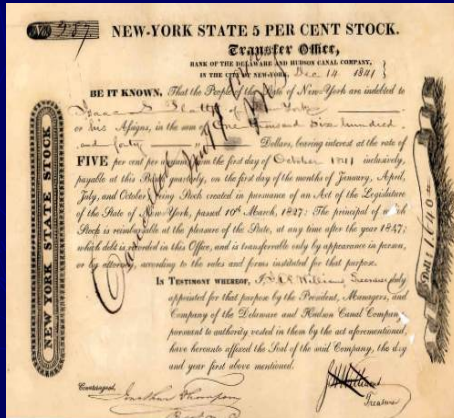 No. 257
NEW-YORK STATE 5 PER CENT STOCK.
Transfer Office,
BANK OF THE DELAWARE AND HUDSON CANAL COMPANY,
IN THE CITY OF NEW-YORK, Dec 14 1841
BE IT KNOWN, That the People of the State of New-York are indebted to
Isaac S. Platt of New York
or his Assigns, in the sum of One thousand Six hundred
and forty Dollars, bearing interest at the rate of
FIVE per cent per annum from the first day of October 1841 inclusively,
payable at this Bank quarterly, on the first day of the months of January, April,
July, and October: being Stock created in pursuance of an Act of the Legislature
of the State of New-York, passed 10th March, 1827: The principal of which
Stock is reimbursable at the pleasure of the State, at any time after the year 1847;
which debt is recorded in this Office, and is transferable only by appearance in person,
or by attorney, according to the rules and forms instituted for that purpose.
IN TESTIMONY WHEREOF, I, Williams, Treasurer duly
appointed for that purpose by the President, Managers, and
Company of the Delaware and Hudson Canal Company
pursuant to authority vested in them by the act aforementioned,
have hereunto affixed the Seal of the said Company, the day
and year first above mentioned.
Countersigned,
Jonathan Thompson
Williams
Treasurer
NEW YORK STATE STOCK
Dolls. 1,640
Cancelled